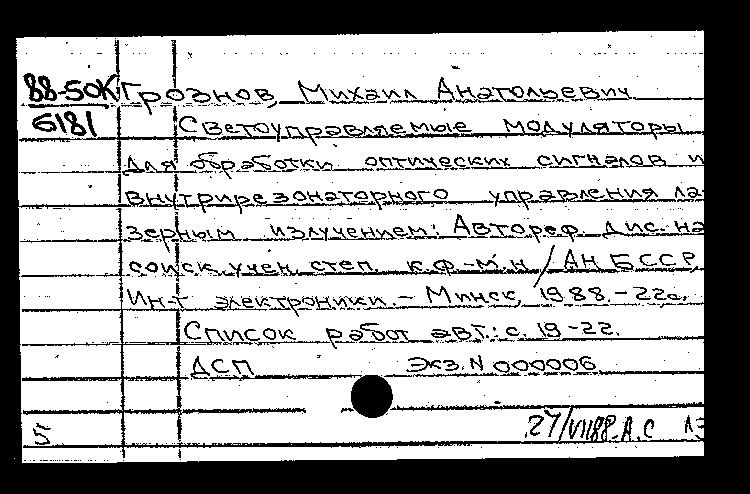 88-50К Грознов, Михаил Анатольевич
6181 Светоуправляемые модуляторы
для обработки оптических сигналов и
внутрирезонаторного управления ла-
зерным излучением: Автореф. дис. на
соиск. учен. степ. к.ф.-м.н / АН БССР,
Ин-т электроники. - Минск, 1988. - 22с.
Список работ авт.: с. 19-22.
ДСП Экз. N 000006
5 27/VII88 А.С